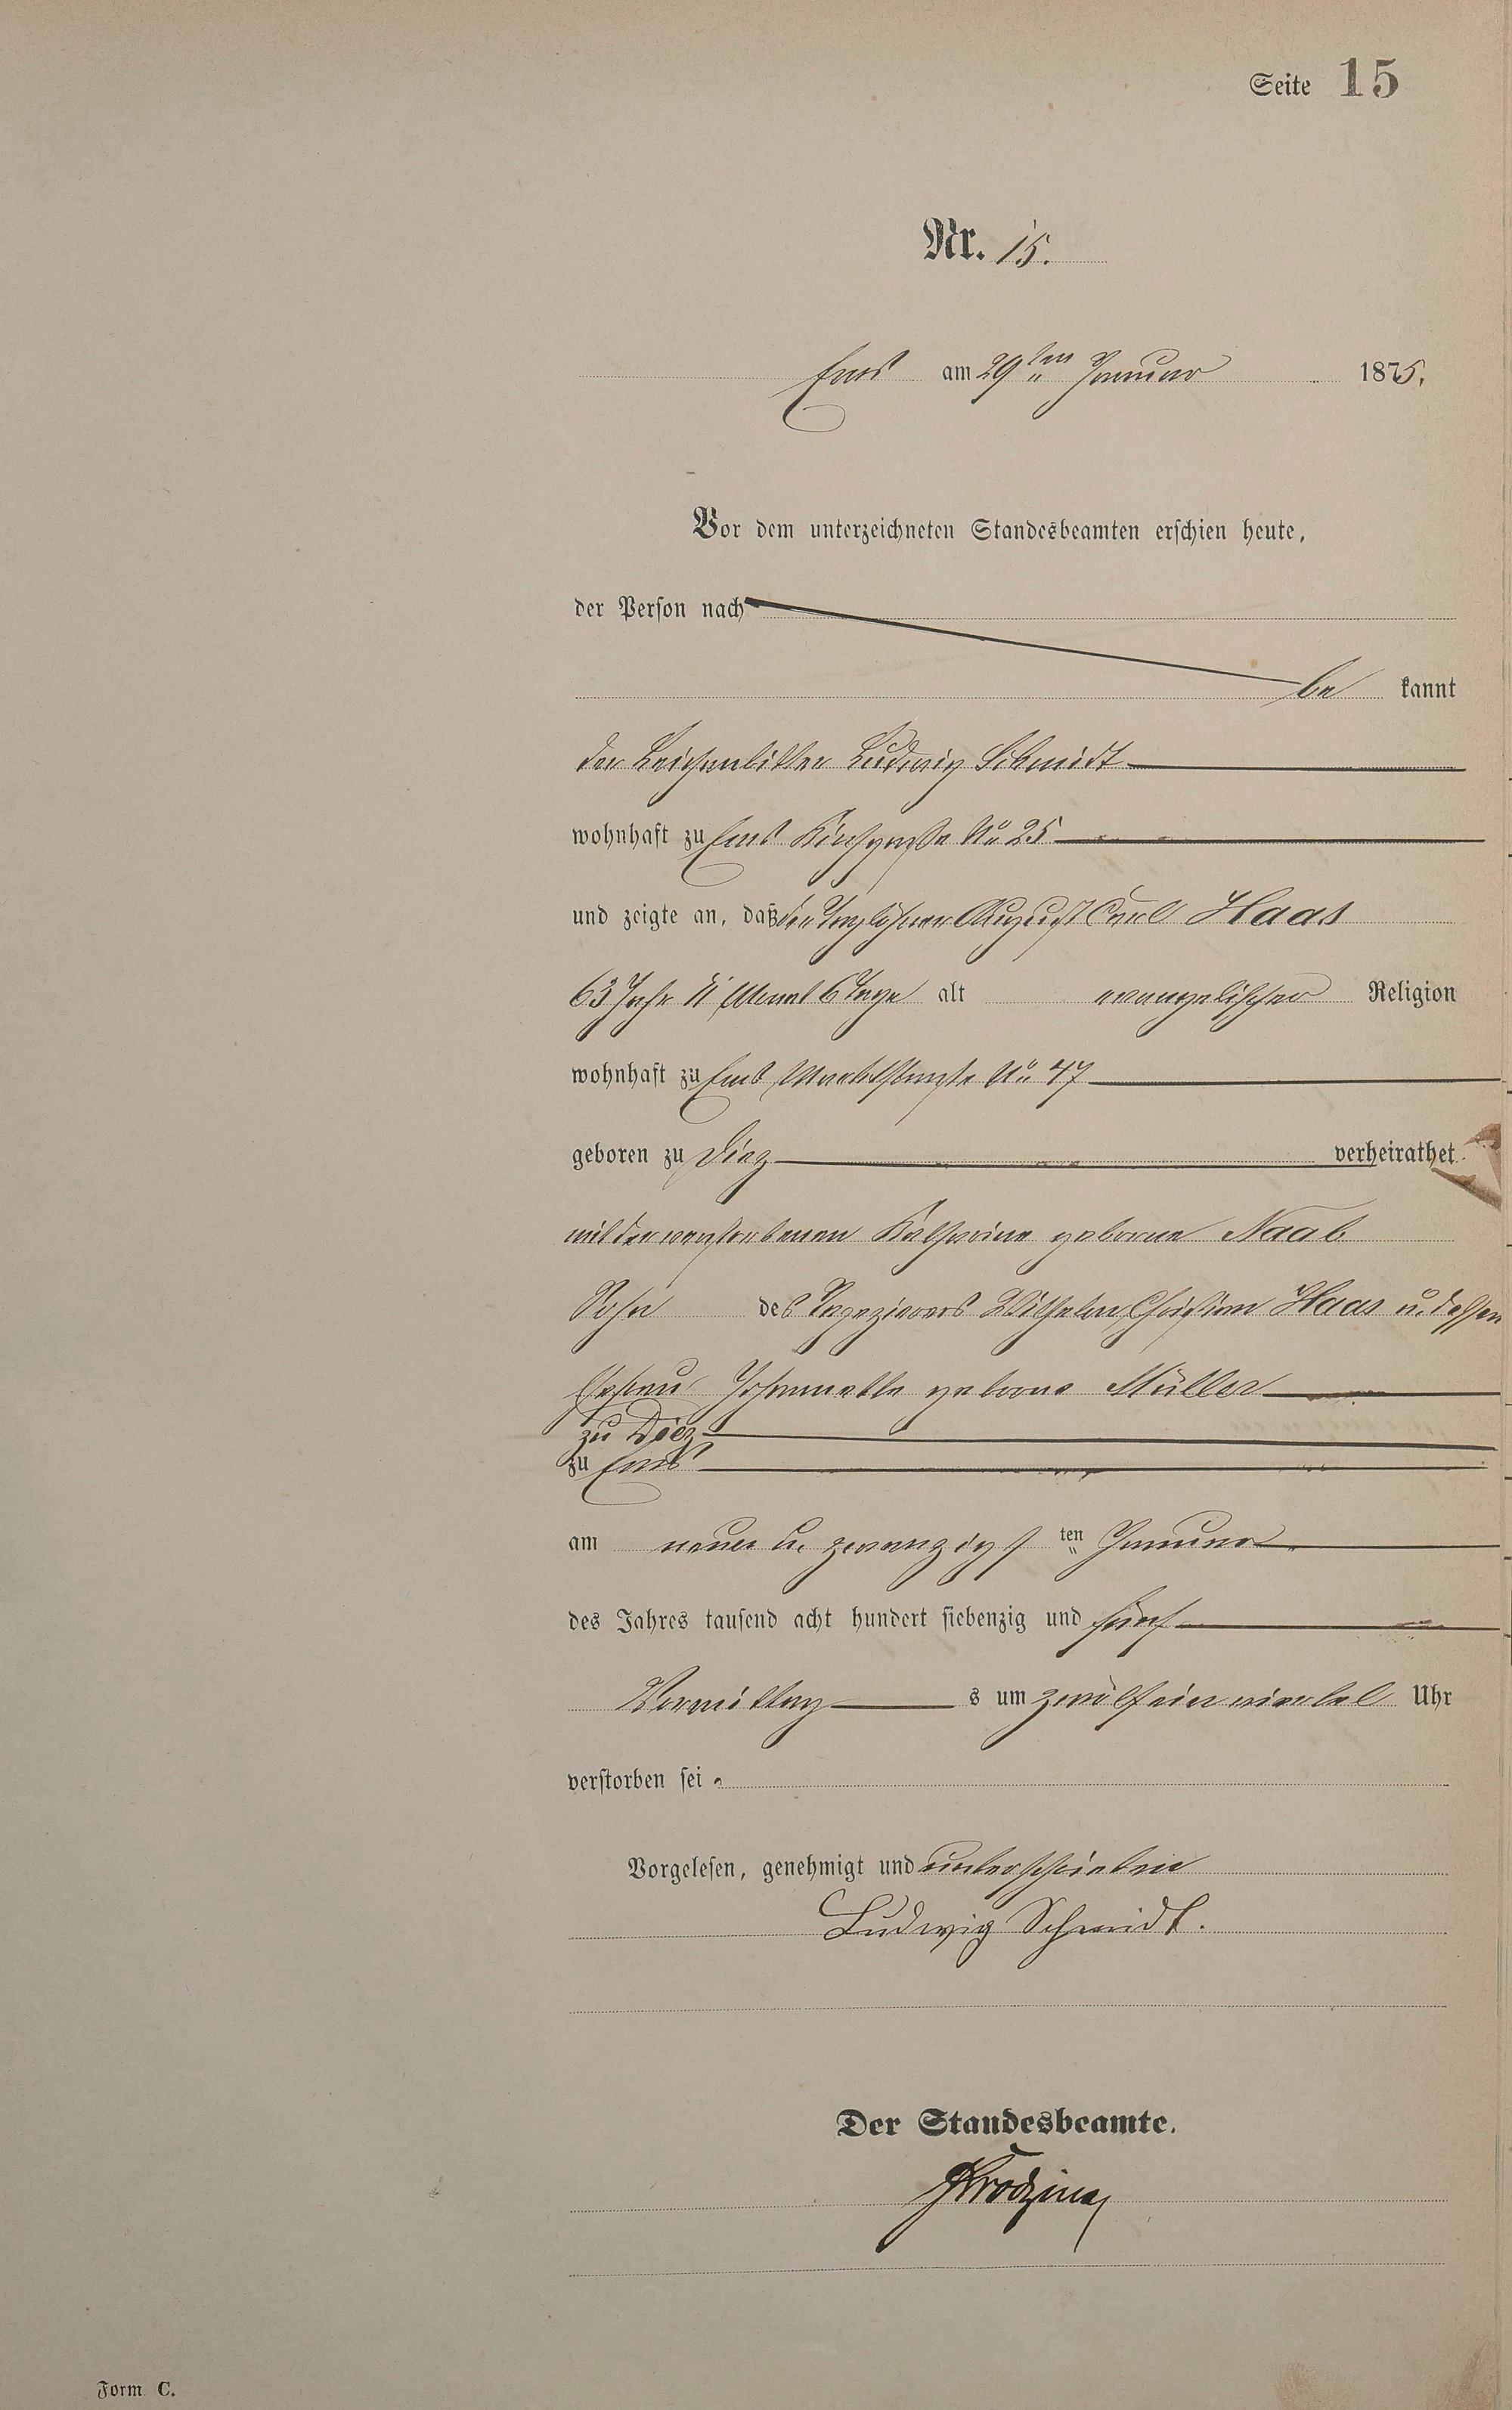 Seite 15
Nr. 15.
Ems am 29ten Januar 1875.
Vor dem unterzeichneten Standesbeamten erschien heute,
der Person nach
be kannt
der Leichenbitter Ludwig Schmidt
wohnhaft zu Ems Kirchgasse No 25
und zeigte an, daß der Taglöhner August Carl Haas
63 Jahr 11 Monat 6 Tage alt evangelischer Religion
wohnhaft zu Ems Marktstraße No 47
geboren zu Diez verheirathet
mit der verstorbenen Katharine geborene Naab
Sohn des Tapezierers Wilhelm Christian Haas u. dessen
Ehefrau Johannette geborne Müller
zu Diez
zu Ems
am neun u. zwanzigst ten Januar
des Jahres tausend acht hundert siebenzig und fünf
Vormittag s um zwölf ein viertel Uhr
verstorben sei.
Vorgelesen, genehmigt und unterschrieben
Ludwig Schmidt.
Der Standesbeamte.
Form. C.